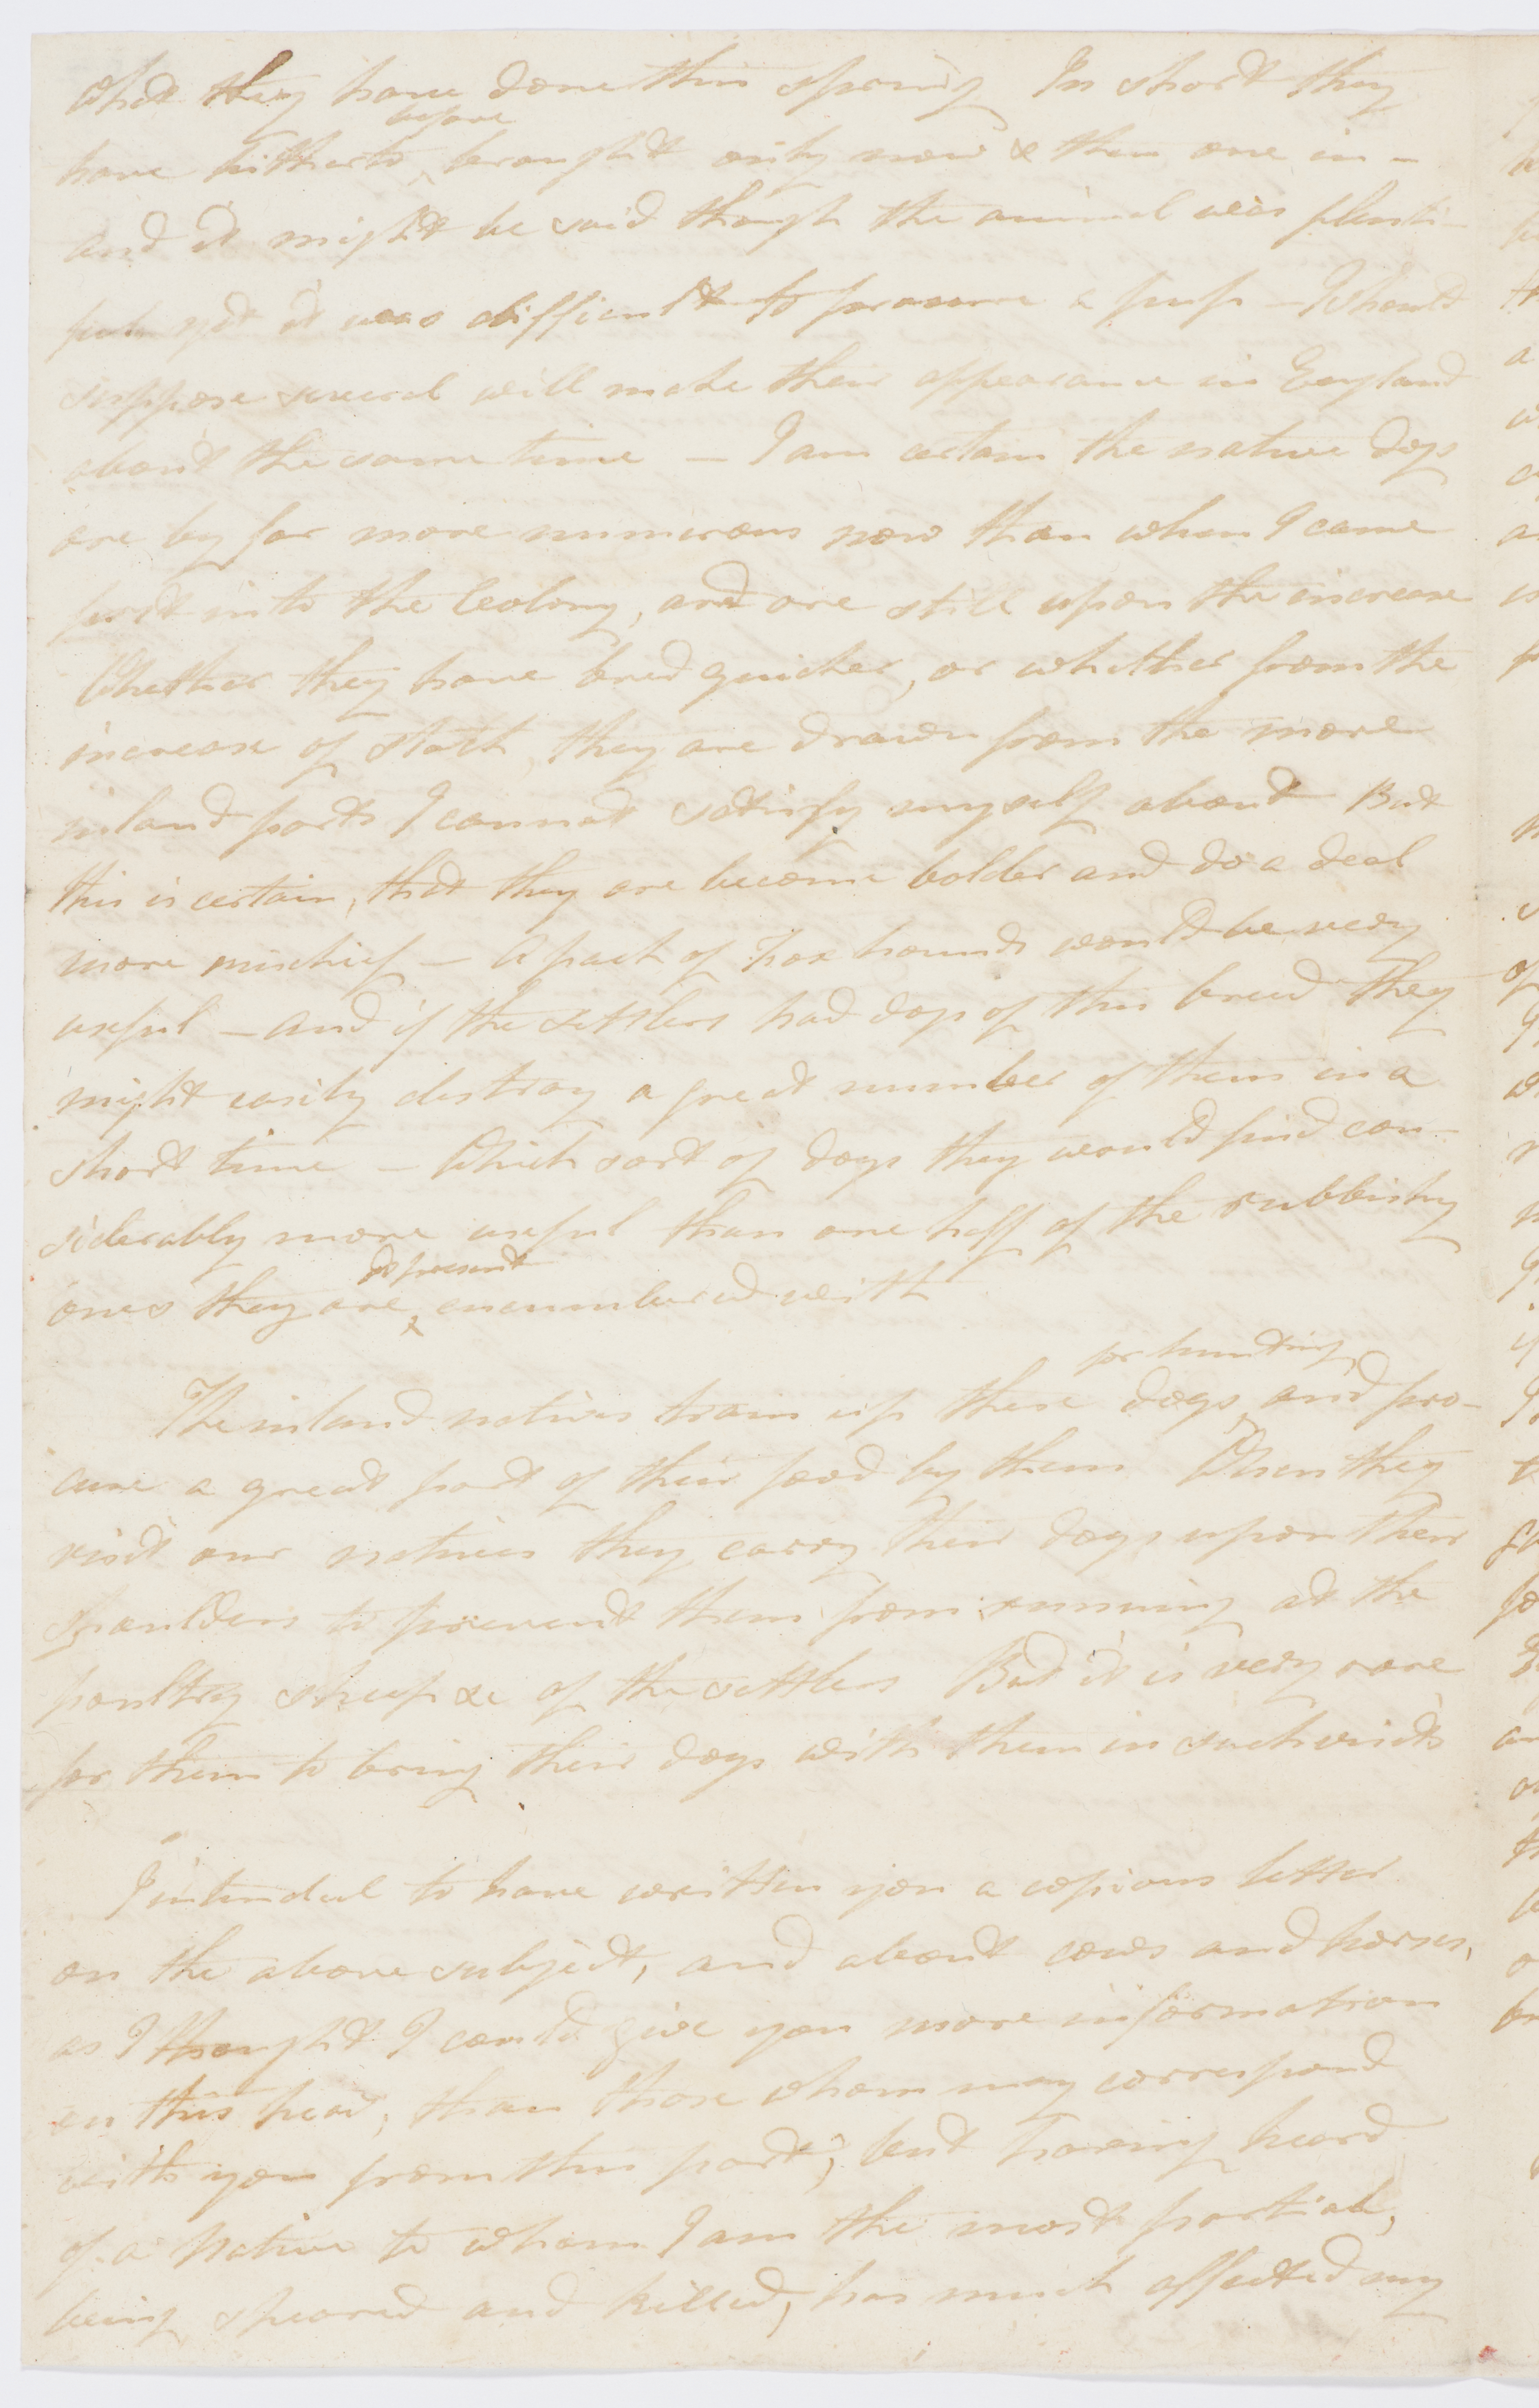 what they have done this spring In short they
have hitherto before brought only now & then one in -
and it might be said though the animal was plenti-
full yet it was difficult to procure a pup - I should
suppose several will make their appearance in England
about the same time - I am certain the native dogs
are by far more numerous now than when I came
first into the Colony, and are still upon the increase
Whether they have bred quicker, or whether from the
increase of stock, they are drawn from the more
inland parts I cannot satisfy myself about But
this is certain, that they are become bolder and do a deal
more mischief - a pack of fox hounds would be very
useful - and if the settlers had dogs of this breed they
might easily destroy a great number of them in a
short time - Which sort of dogs they would find con-
siderably more useful than one half of the rubbishy
ones they are at present encumbered with
The inland natives train up these dogs for hunting, and pro-
cure a great part of their food by them When they
visit our natives they carry their dogs upon their
shoulders to prevent them from running at the
poultry sheep &c of the settlers But it is very rare
for them to bring their dogs with them in such visits
I intended to have written you a copious letter
on the above subject, and about cows and horses,
as I thought I could give you more information
on this head, than those whom may correspond
with you from this part; but having heard
of a native to whom I am the most partial,
being speared and killed, has much affected my